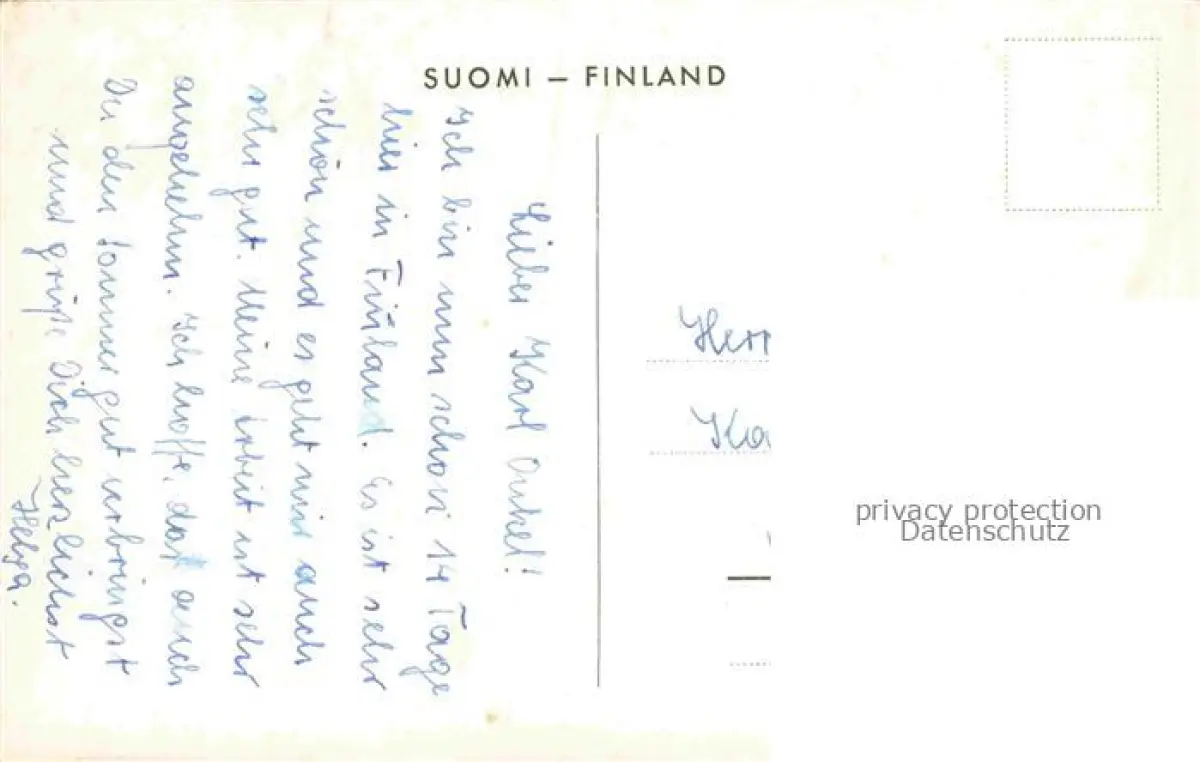 SUOMI — FINLAND
Lieber Karl Onkel!
Ich bin nun schon 14 Tage
hier in Finland. Es ist sehr
schön und es geht mir auch
sehr gut. Meine Arbeit ist sehr
angenehm. Ich hoffe, daß auch
Du den Sommer gut verbringst
und grüße Dich herzlichst
Helga.
Herr
Ka
privacy protection
Datenschutz